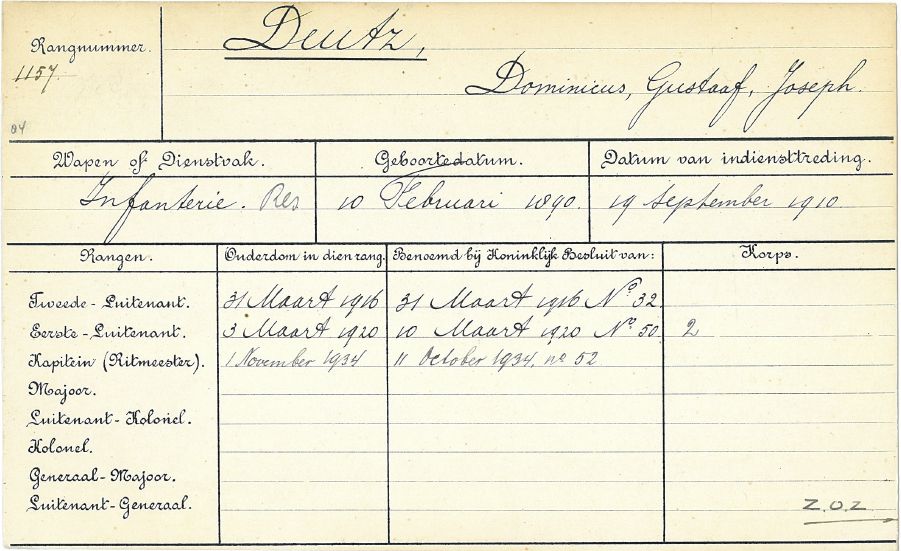 Rangnummer.
1157.
04
Deutz,
Dominicus, Gustaaf, Joseph.
Wapen of Dienstvak. Geboortedatum. Datum van indiensttreding.
Infanterie. Res 10 Februari 1890. 19 September 1910.
Rangen. Ouderdom in dien rang. Benoemd bij Koninklijk Besluit van: Korps.
Tweede-Luitenant. 31 Maart 1916 31 Maart 1916 No 32.
Eerste-Luitenant. 3 Maart 1920 10 Maart 1920 No 50. 2
Kapitein (Ritmeester). 1 November 1934 11 October 1934, no 52
Majoor.
Luitenant-Kolonel.
Kolonel.
Generaal-Majoor.
Luitenant-Generaal.
Z.O.Z